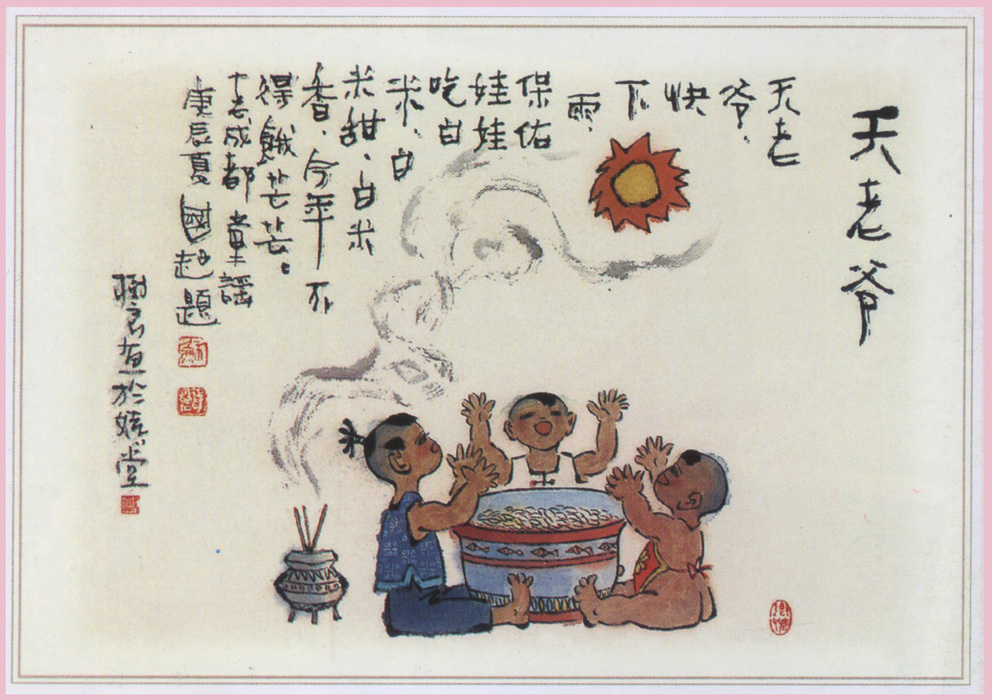 天老爷
天老
爷、
快
下
雨、
保佑
娃娃
吃白
米、白
米甜、白米
香、今年不
得餓芒芒。
老成都童謡
庚辰夏國題
樹画於堂